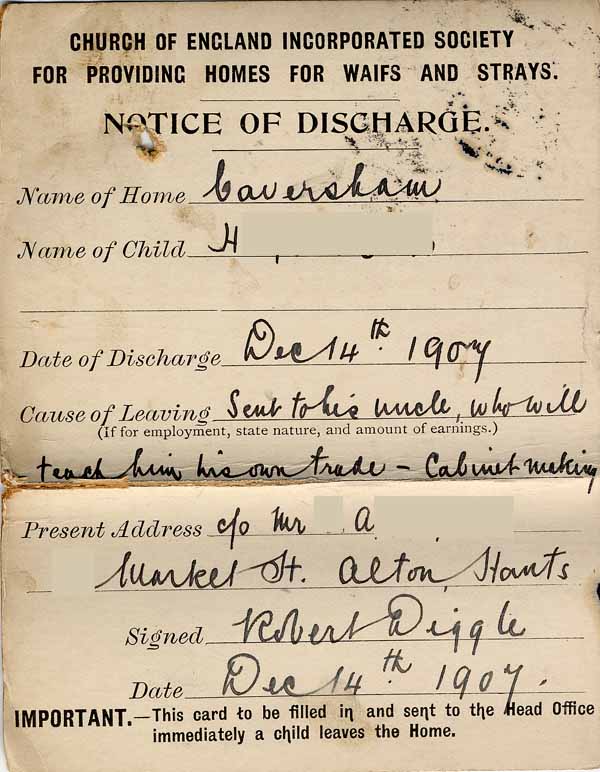 CHURCH OF ENGLAND INCORPORATED SOCIETY
FOR PROVIDING HOMES FOR WAIFS AND STRAYS.
NOTICE OF DISCHARGE.
Name of Home Caversham
Name of Child H
Date of Discharge Dec 14th 1907
Cause of Leaving Sent to his uncle, who will
(If for employment, state nature, and amount of earnings.)
- teach him his own trade - Cabinet making
Present Address c/o Mr A
Market St. Alton, Hants
Signed Robert Diggle
Date Dec 14th 1907.
IMPORTANT.—This card to be filled in and sent to the Head Office
immediately a child leaves the Home.